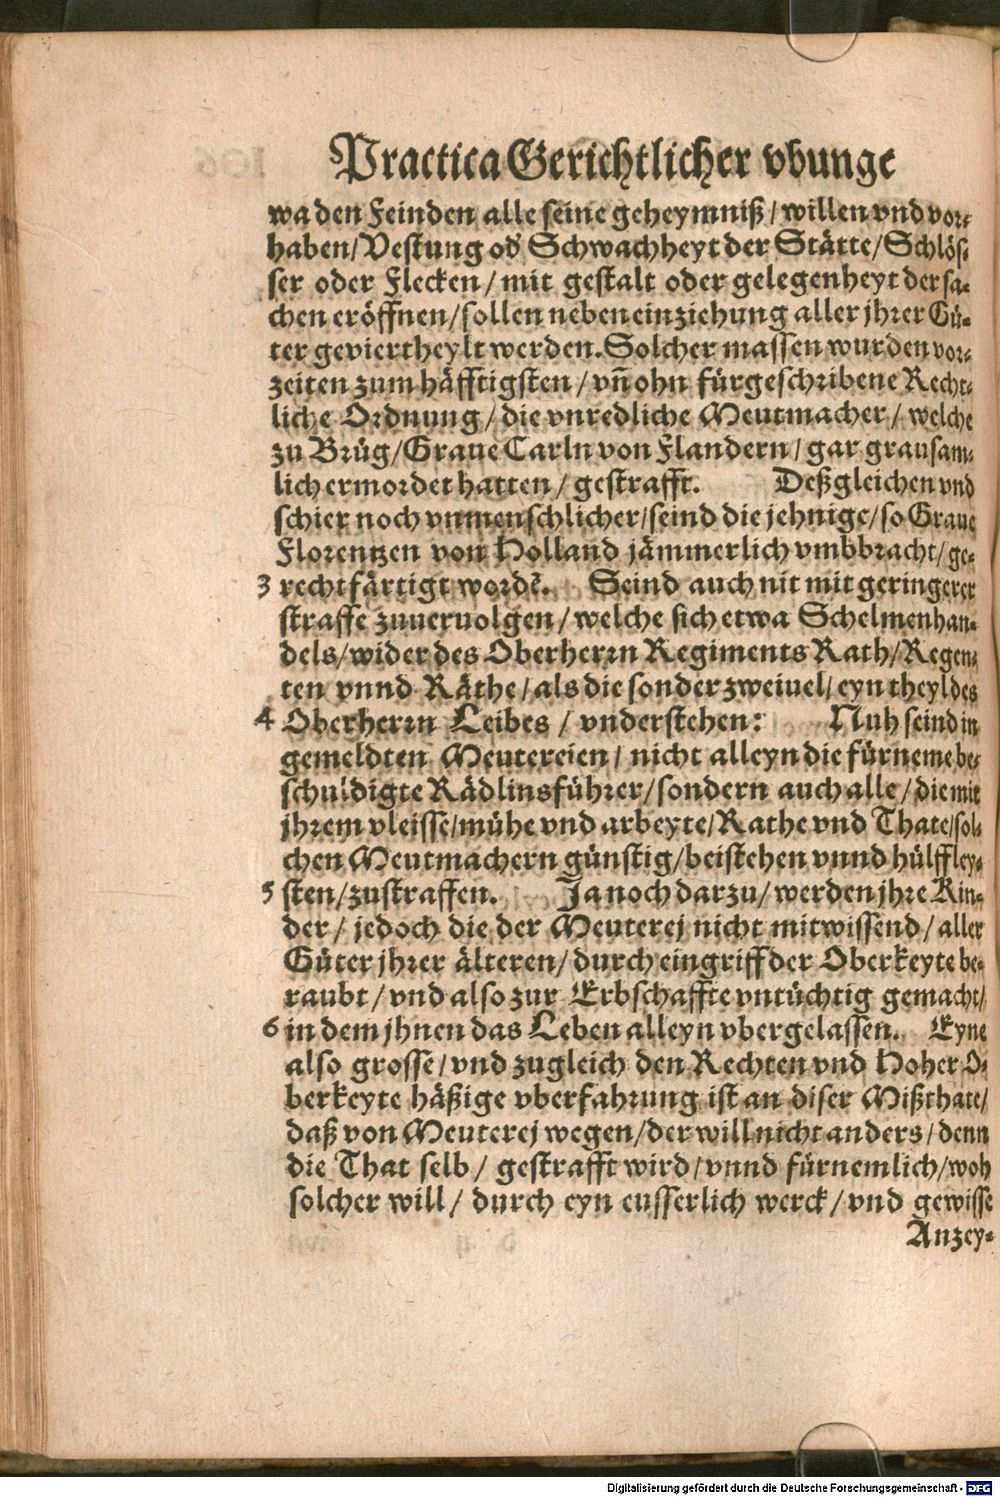 Practica Gerichtlicher vbunge
wa den Feinden alle seine geheymniß / willen vnd vor⸗
haben / Vestung od̛ Schwachheyt der Stätte / Schlös⸗
ser oder Flecken / mit gestalt oder gelegenheyt der sa⸗
chen eröffnen / sollen neben einziehung aller jhrer Gü⸗
ter geviertheylt werden. Solcher massen wurden vor⸗
zeiten zum häfftigsten / vñ ohn fürgeschribene Recht⸗
liche Ordnung / die vnredliche Meutmacher / welche
zu Brüg / Graue Carln von Flandern / gar grausam⸗
lich ermordet hatten / gestrafft. Deßgleichen vnd
schier noch vnmenschlicher / seind die jehnige / so Graue
Florentzen von Holland jämmerlich vmbbracht / ge⸗
3 rechtfärtigt wordẽ. Seind auch nit mit geringerer
straffe zuueruolgen / welche sich etwa Schelmenhan⸗
dels / wider des Oberherrn Regiments Rath / Regen⸗
ten vnnd Räthe / als die sonder zweiuel / eyn theyl des
4 Oberherrn Leibes / vnderstehen: Nuh seind in
gemeldten Meutereien / nicht alleyn die fürneme be⸗
schuldigte Rädlinsführer / sondern auch alle / die mit
jhrem vleisse / mühe vnd arbeyte / Rathe vnd Thate / sol⸗
chen Meutmachern günstig / beistehen vnnd hülff ley⸗
5 sten / zustraffen. Ja noch darzu / werden jhre Kin⸗
der / jedoch die der Meuterej nicht mitwissend / aller
Güter jhrer älteren / durch eingriff der Oberkeyte be⸗
raubt / vnd also zur Erbschaffte vntüchtig gemacht /
6 in dem jhnen das Leben alleyn vbergelassen. Eyne
also grosse / vnd zugleich den Rechten vnd Hoher O⸗
berkeyte häßige vberfahrung ist an diser Mißthate /
daß von Meuterej wegen / der will nicht anders / denn
die That selb / gestrafft wird / vnnd fürnemlich / woh
solcher will / durch eyn eusserlich werck / vnd gewisse
Anzey⸗
Digitalisierung gefördert durch die Deutsche Forschungsgemeinschaft - DFG